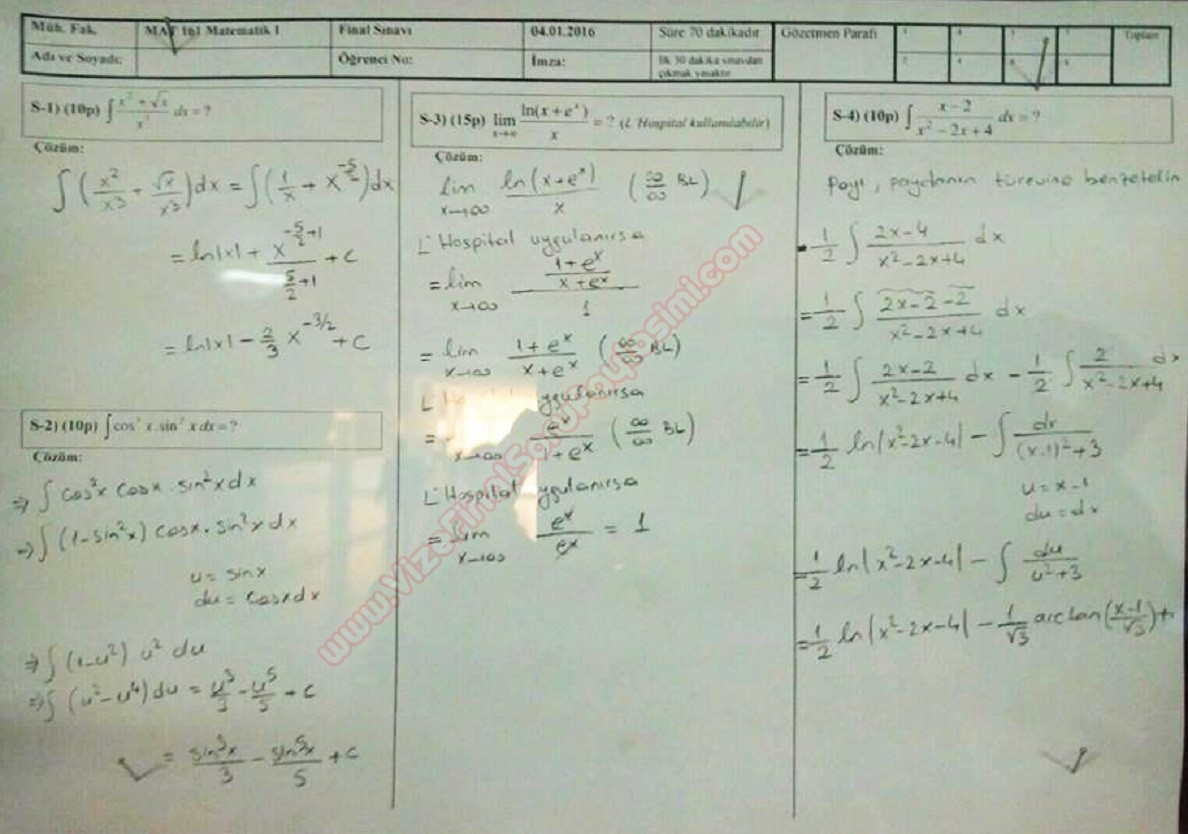 Müh. Fak. MAT 161 Matematik I Final Sınavı 04.01.2016 Süre 70 dakikadır Gözetmen Parafı Toplam
Adı ve Soyadı: Öğrenci No: İmza: İlk 30 dakika sınavdan çıkmak yasaktır
S-1) (10p) ∫ (x² + √x)/x³ dx = ?
Çözüm:
∫ (x²/x³ + √x/x³) dx = ∫ (1/x + x^(-5/2)) dx
= ln|x| + x^(-5/2+1)/(5/2+1) + C
= ln|x| - 2/3 x^(-3/2) + C
S-2) (10p) ∫ cos³ x.sin² x dx = ?
Çözüm:
⇒ ∫ cos²x cosx . sin²x dx
⇒ ∫ (1-sin²x) cosx . sin²x dx
u = sinx
du = cosxdx
⇒ ∫ (1-u²) u² du
⇒ ∫ (u²-u⁴) du = u³/3 - u⁵/5 + C
= sin³x/3 - sin⁵x/5 + C
S-3) (15p) lim x→∞ ln(x + e^x)/x = ? (L'Hospital kullanılabilir)
Çözüm:
lim x→∞ ln(x+e^x)/x (∞/∞ BL)
L'Hospital uygulanırsa
= lim x→∞ ((1+e^x)/(x+e^x))/1
= lim x→∞ (1+e^x)/(x+e^x) (∞/∞ BL)
L'Hospital uygulanırsa
= x→∞ e^x/(1+e^x) (∞/∞ BL)
L'Hospital uygulanırsa
= lim x→∞ e^x/e^x = 1
S-4) (10p) ∫ (x - 2)/(x² - 2x + 4) dx = ?
Çözüm:
Payı, paydanın türevine benzetelim
= 1/2 ∫ (2x-4)/(x²-2x+4) dx
= 1/2 ∫ (2x-2-2)/(x²-2x+4) dx
= 1/2 ∫ (2x-2)/(x²-2x+4) dx - 1/2 ∫ 2/(x²-2x+4) dx
= 1/2 ln|x²-2x-4| - ∫ dx/((x-1)²+3)
u = x-1
du = dx
= 1/2 ln|x²-2x-4| - ∫ du/(u²+3)
= 1/2 ln|x²-2x-4| - 1/√3 arctan((x-1)/√3) +
www.VizeFinalSoruPaylasimi.com